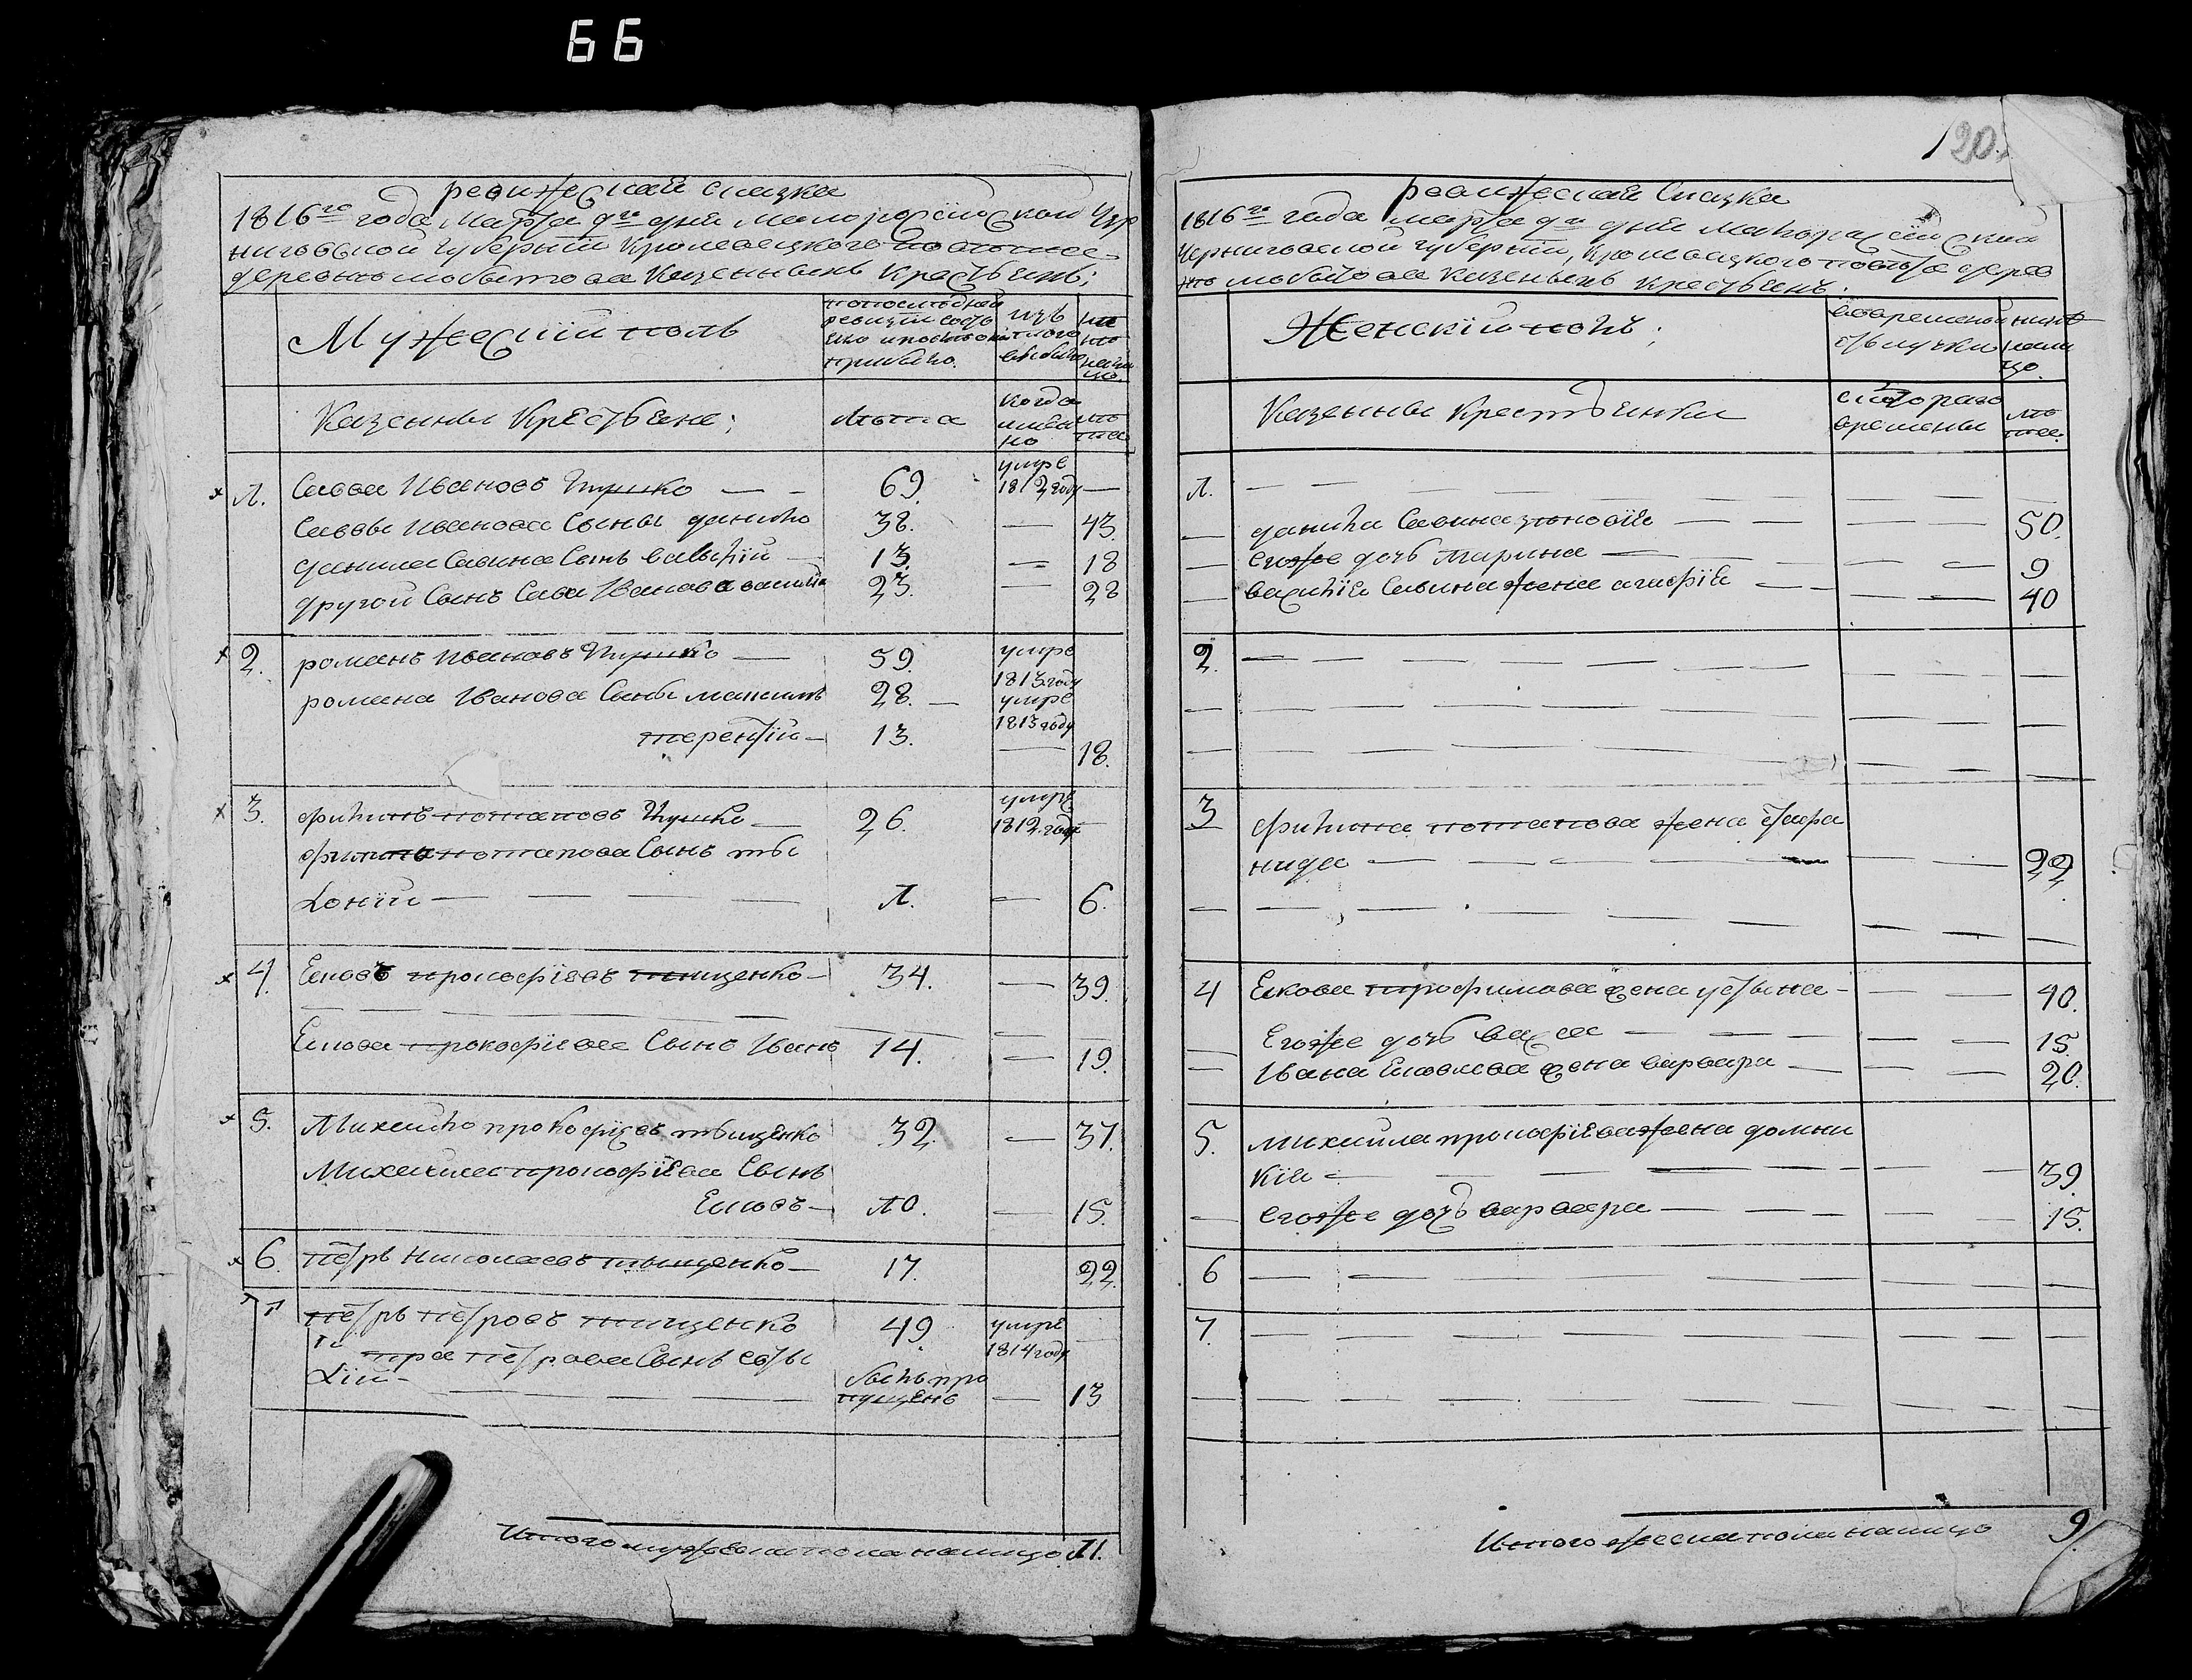 66
ревижеская сказка
1816го года Марта 9го дня Малоросїйской Чер
ниговской губернїи Кролевецкого повета
деревне казенныхъ крестьянъ;
Мужеский полъ
попоследней ревизїи состояло и после оной прибыло.
изъ того выбыло
ныне налицо.
Казенны Крестьяне;
Лета
когда именно
лета
1. Савва Ивановъ 69. умре 1812 году —
Саввы Иванова Сынъ данило 38. — 43.
данила Савина Сынъ василїй — 13. — 18
другой Сынъ Сава Иванова василїй 23. — 28
2. романъ Ивановъ — 59. умре 1813 году
романа Иванова Сынъ максимъ 28. — умре 1813 году
терентїй — 13. — 18.
3. филипъ потаповъ — 26. умре 1812 году —
филипа потапова Сынъ
— 1. — 6.
4. Ековъ прокофїевъ тищенко — 34. — 39.
Екова прокофїева Сынъ Иванъ 14. — 19.
5. Михайло прокофїевъ тыщенко 32. — 37.
Михайла прокофїева Сынъ
Ековъ — 10. — 15.
6. петръ николаевъ тыщенко — 17. 22.
7 петръ петровъ тищенко 49. умре 1814 году —
петра петрова Сынъ
— былъ пропущенъ — 13
Итого мужеска пола налицо 11.
120.
ревижеская Сказка
1816го года марта 9го дня Малоросїйской
Черниговской губернїи, Кролевецкого повета дерев
не казенныхъ крестьянъ.
Женскїй полъ;
вовременной отлучки
ныне налицо.
Казенны крестьянки
с которого времены
лета.
1.
данила Савина зеновїя — 50.
егоже дочь марина — 9
василїя Савина жена агафїя — 40
2.
3 филипа потапова жена
нида — 22.
4 Екова трофимова жена устина — 40.
Егоже дочь васса — 15.
Ивана Ековлева жена варвара — 20.
5. михаила прокофїева жена домни
кїя — 39.
егоже дочъ варвара — 15.
6
7.
Итого женска пола налицо 9.